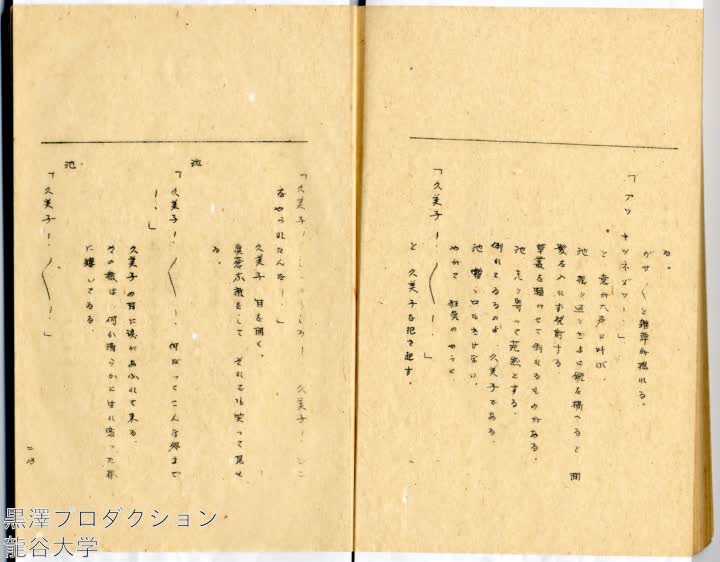 る。
がサ〱と雑草が揺れる。
「アツ　キツネダツ！」
と竜が大声に叫ぶ。
池　振り返りざまに銃を構へると　間
髪を入れず発射する
草叢を騒がせて倒れるものがある。
池　走り寄つて茫然とする。
倒れてゐるのは、久美子である。
池　暫し口もきけない。
やがて　狂気のやうに
「久美子！〱！」
と　久美子を抱き起す。
「久美子！　しろ！　久美子！　どこ
をやられたんだ！」
久美子　目を開く。
真蒼な顔をして　それでも笑つて見せ
る。
池
「久美子！〱！　何だつてこんな郷まで
！」
久美子の目に涙があふれて来る。
その顔は　何か清らかに生れ変つた様
に輝いてゐる
池
「久美子！〱！」
黒澤プロダクション
龍谷大学